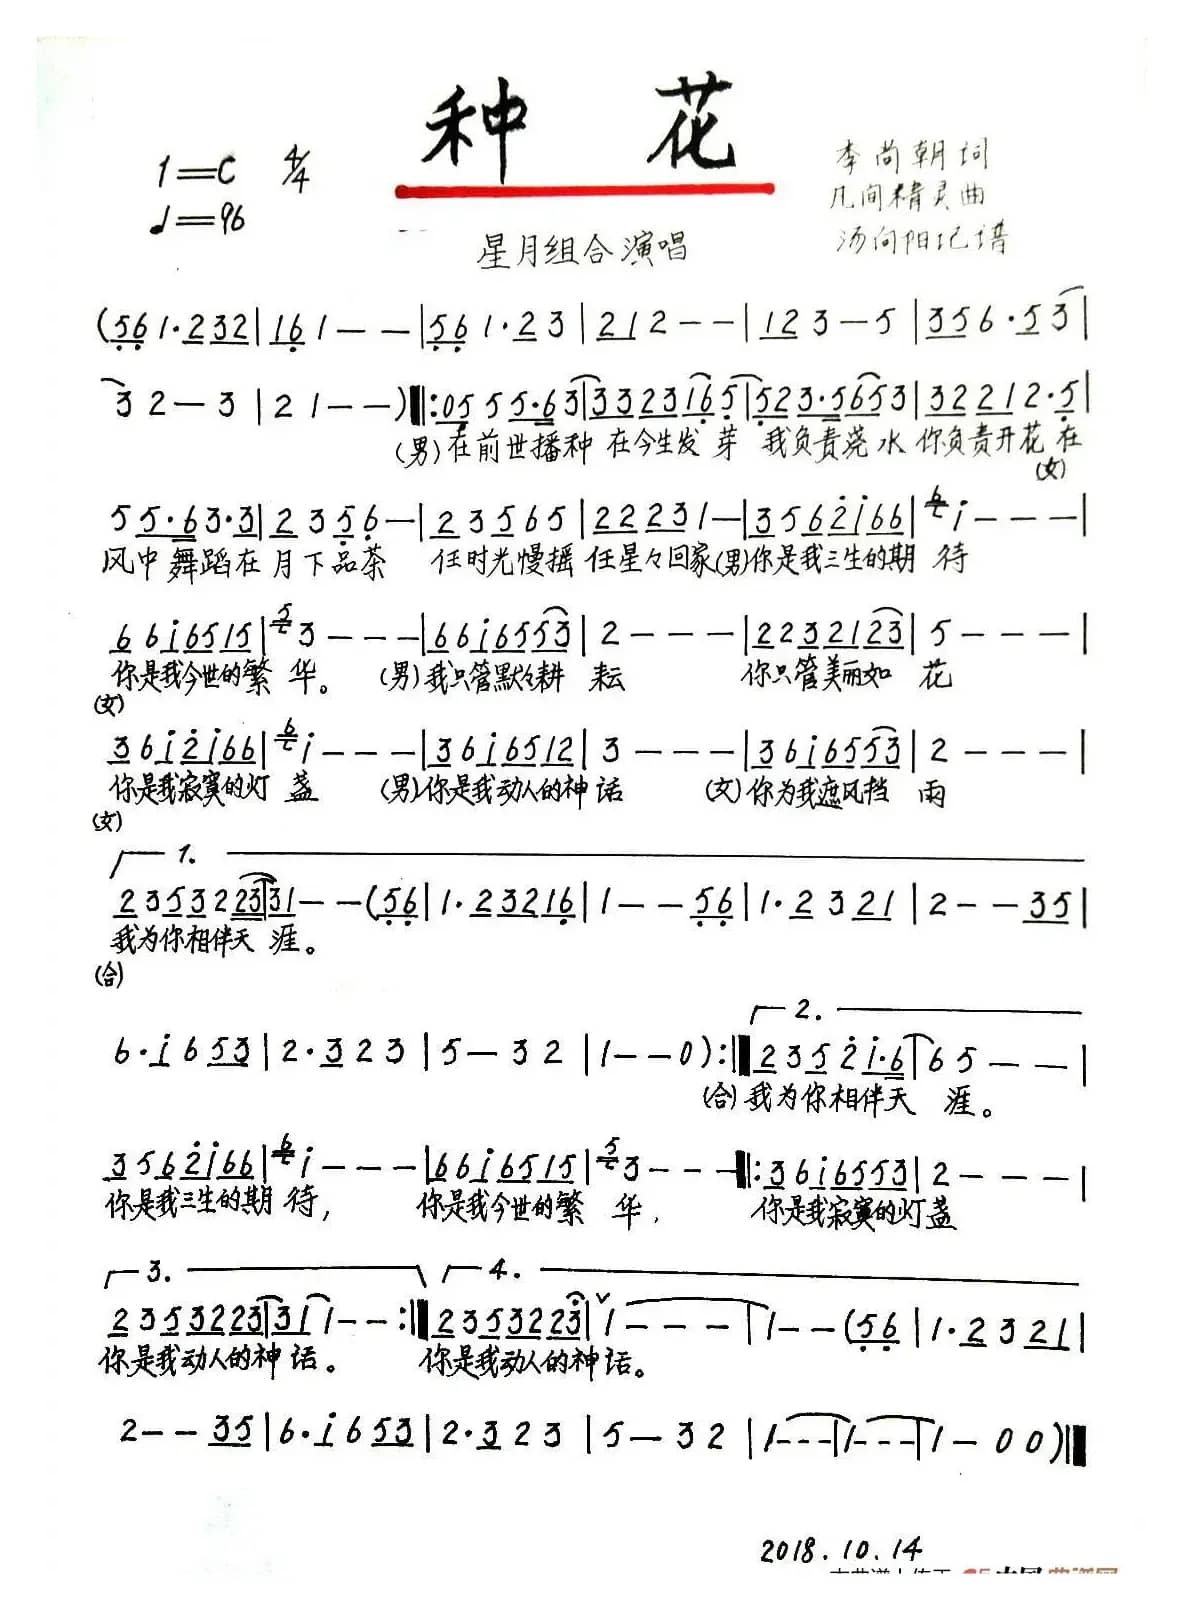 种 花
1=C 4/4
♩=96
李尚朝词
凡间精灵曲
汤向阳记谱
星月组合演唱
(56 1·232|161--|561·23|212--|123-5|356·53|
32-3|21--)‖:05 55·63|3323165|523·5653|32212·5|
(男)在前世播种 在今生发 芽 我负责浇 水 你负责开花 在
(女)
55·63·3|2356-|23565|22231-|3562̇1̇66|⁶1̇---|
风中舞蹈在 月下品茶 任时光慢摇 任星々回家(男)你是我三生的期 待
661̇6515|⁵3---|661̇6553|2---|2232123|5---|
你是我今世的繁 华。 (男)我只管默々耕 耘 你只管美丽如 花
(女)
361̇2̇1̇66|⁶1̇---|361̇6512|3---|361̇6553|2---|
你是我寂寞的灯 盏 (男)你是我动人的神话 (女)你为我遮风挡 雨
(女)
1.
2353223|31--(56|1·23216|1--56|1·2321|2--35|
我为你相伴天 涯。
(合)
2.
6·1̇653|2·323|5-32|1--0):‖2352̇1̇·6|65---|
(合)我为你相伴天 涯。
3562̇1̇66|⁶1̇---|661̇6515|⁵3---‖:361̇6553|2---|
你是我三生的期 待, 你是我今世的繁 华, 你是我寂寞的灯盏
3. 4.
2353223|311--:‖2353223|1---|1--(56|1·2321|
你是我动人的神话。 你是我动人的神话。
2--35|6·1̇653|2·323|5-32|1---|1---|1-00)‖
2018.10.14